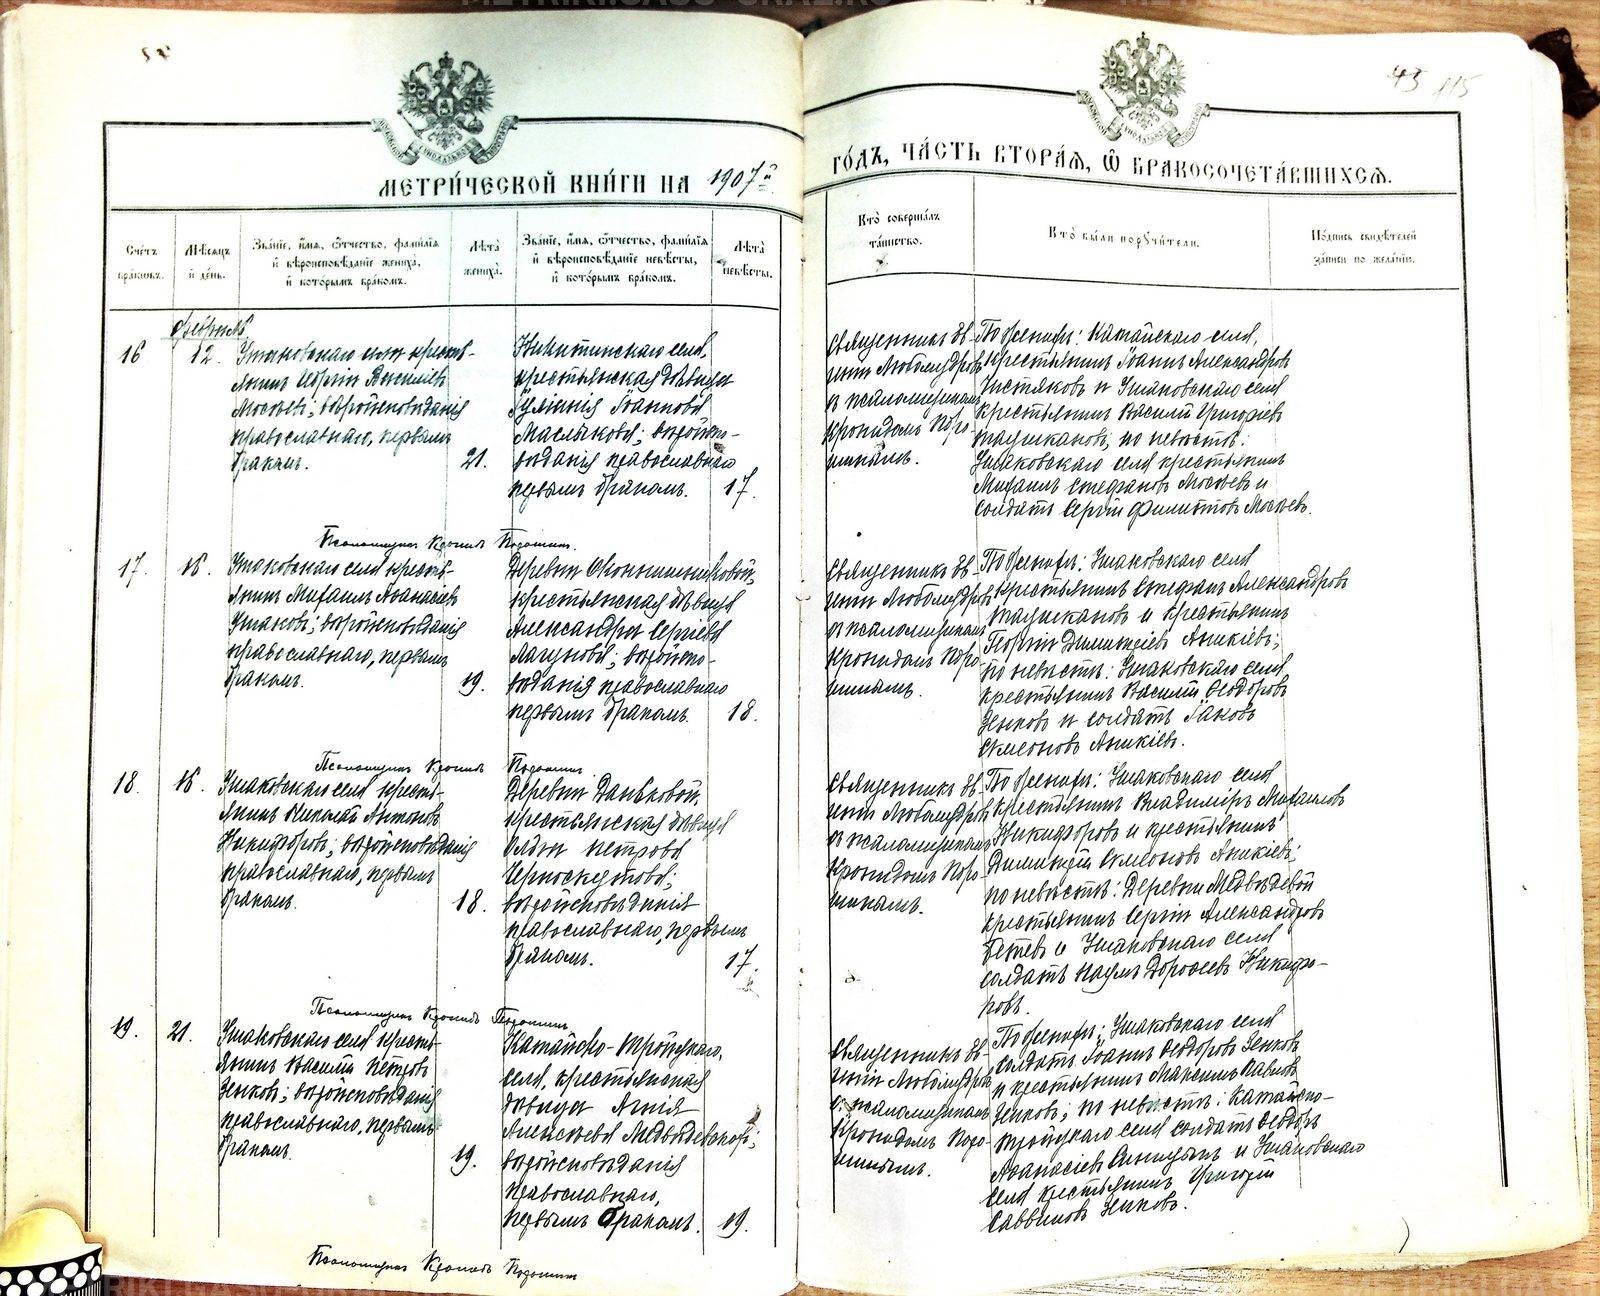 43 115
МЕТРИ́ЧЕСКОЙ КНИ́ГИ НА 1907й
ГО́ДЪ, ЧА́СТЬ ВТОРА́Я, Ѽ БРАКОСОЧЕТА́ВШИХСЯ.
Сче́тъ бра́ковъ.
Мѣ́сяцъ и де́нь.
Зва́ніе, и́мя, ѻ҆́тчество, фами́лія
и҆ вѣроисповѣ́даніе жениха̀,
и҆ кото́рымъ бра́комъ.
Лѣ́та
жениха̀.
Зва́ніе, и́мя, ѻ҆́тчество, фами́лія
и҆ вѣроисповѣ́даніе невѣ́сты,
и҆ кото́рымъ бра́комъ.
Лѣ́та
невѣ́сты.
Кто̀ соверша́лъ
та́инство.
Кто̀ бы́ли поручи́тели.
По́дпись свидѣ́телей
за́писи по жела́нію.
Февраль
16
12.
Ушаковскаго села кресть-
янинъ Георгій Василіевъ
Мосѣевъ; вѣроисповѣданія
православнаго, первымъ
бракомъ.
21.
Никитинскаго села,
крестьянская дѣвица
Іуліанія Іоаннова
Маслыкова; вѣроиспо-
вѣданія православнаго
первымъ бракомъ.
17.
Священникъ Ев-
геній Любомудровъ
съ псаломщикомъ
Кронидомъ Поро-
шинымъ.
По женихѣ: Катайскаго села,
крестьянинъ Іоаннъ Александровъ
Чистяковъ и Ушаковскаго села
крестьянинъ Василій Григоріевъ
Таушкановъ; по невѣстѣ:
Ушаковскаго села крестьянинъ
Михаилъ Стефановъ Мосѣевъ и
солдатъ Сергій Филиптовъ Мосѣевъ.
Псаломщикъ Кронидъ Порошинъ.
17.
18.
Ушаковскаго села кресть-
янинъ Михаилъ Аѳанасіевъ
Ушаковъ; вѣроисповѣданія
православнаго, первымъ
бракомъ.
19.
Деревни
крестьянская дѣвица
Александра Сергіева
Лагунова; вѣроиспо-
вѣданія православнаго
первымъ бракомъ.
18.
Священникъ Ев-
геній Любомудровъ
съ псаломщикомъ
Кронидомъ Поро-
шинымъ.
По женихѣ: Ушаковскаго села
крестьянинъ Стефанъ Александровъ
Таушкановъ и крестьянинъ
Георгій Димитріевъ Аникіевъ;
по невѣстѣ: Ушаковскаго села
крестьянинъ Василій Ѳеодоровъ
Зенковъ и солдатъ Іаковъ
Симеоновъ Аникіевъ.
Псаломщикъ Кронидъ Порошинъ
18.
18.
Ушаковскаго села кресть-
янинъ Николай Антоновъ
Никифоровъ; вѣроисповѣданія
православнаго, первымъ
бракомъ.
18.
Деревни Даньковой,
крестьянская дѣвица
Петрова
Черноскутова;
вѣроисповѣданія
православнаго, первымъ
бракомъ.
17.
Священникъ Ев-
геній Любомудровъ
съ псаломщикомъ
Кронидомъ Поро-
шинымъ.
По женихѣ: Ушаковскаго села
крестьянинъ Владиміръ Михаиловъ
Никифоровъ и крестьянинъ
Димитрій Симеоновъ Аникіевъ;
по невѣстѣ: Деревни Медвѣдевой
крестьянинъ Сергій Александровъ
Бетевъ и Ушаковскаго села
солдатъ Наумъ Дороѳеевъ Никифо-
ровъ.
Псаломщикъ Кронидъ Порошинъ
19.
21.
Ушаковскаго села кресть-
янинъ Василій Петровъ
Зенковъ; вѣроисповѣданія
православнаго, первымъ
бракомъ.
19.
Катайско-Троицкаго,
села, крестьянская
дѣвица Агнія
Алексѣева Медвѣдевская;
вѣроисповѣданія
православнаго,
первымъ бракомъ.
19.
Священникъ Ев-
геній Любомудровъ
съ псаломщикомъ
Кронидомъ Поро-
шинымъ.
По женихѣ: Ушаковскаго села
солдатъ Іоаннъ Ѳеодоровъ Зенковъ
и крестьянинъ Максимъ Павловъ
Зенковъ; по невѣстѣ: Катайско-
Троицкаго села солдатъ Ѳеодоръ
Аѳанасіевъ Синицынъ и Ушаковскаго
села крестьянинъ Григорій
Саввиновъ Зенковъ.
Псаломщикъ Кронидъ Порошинъ